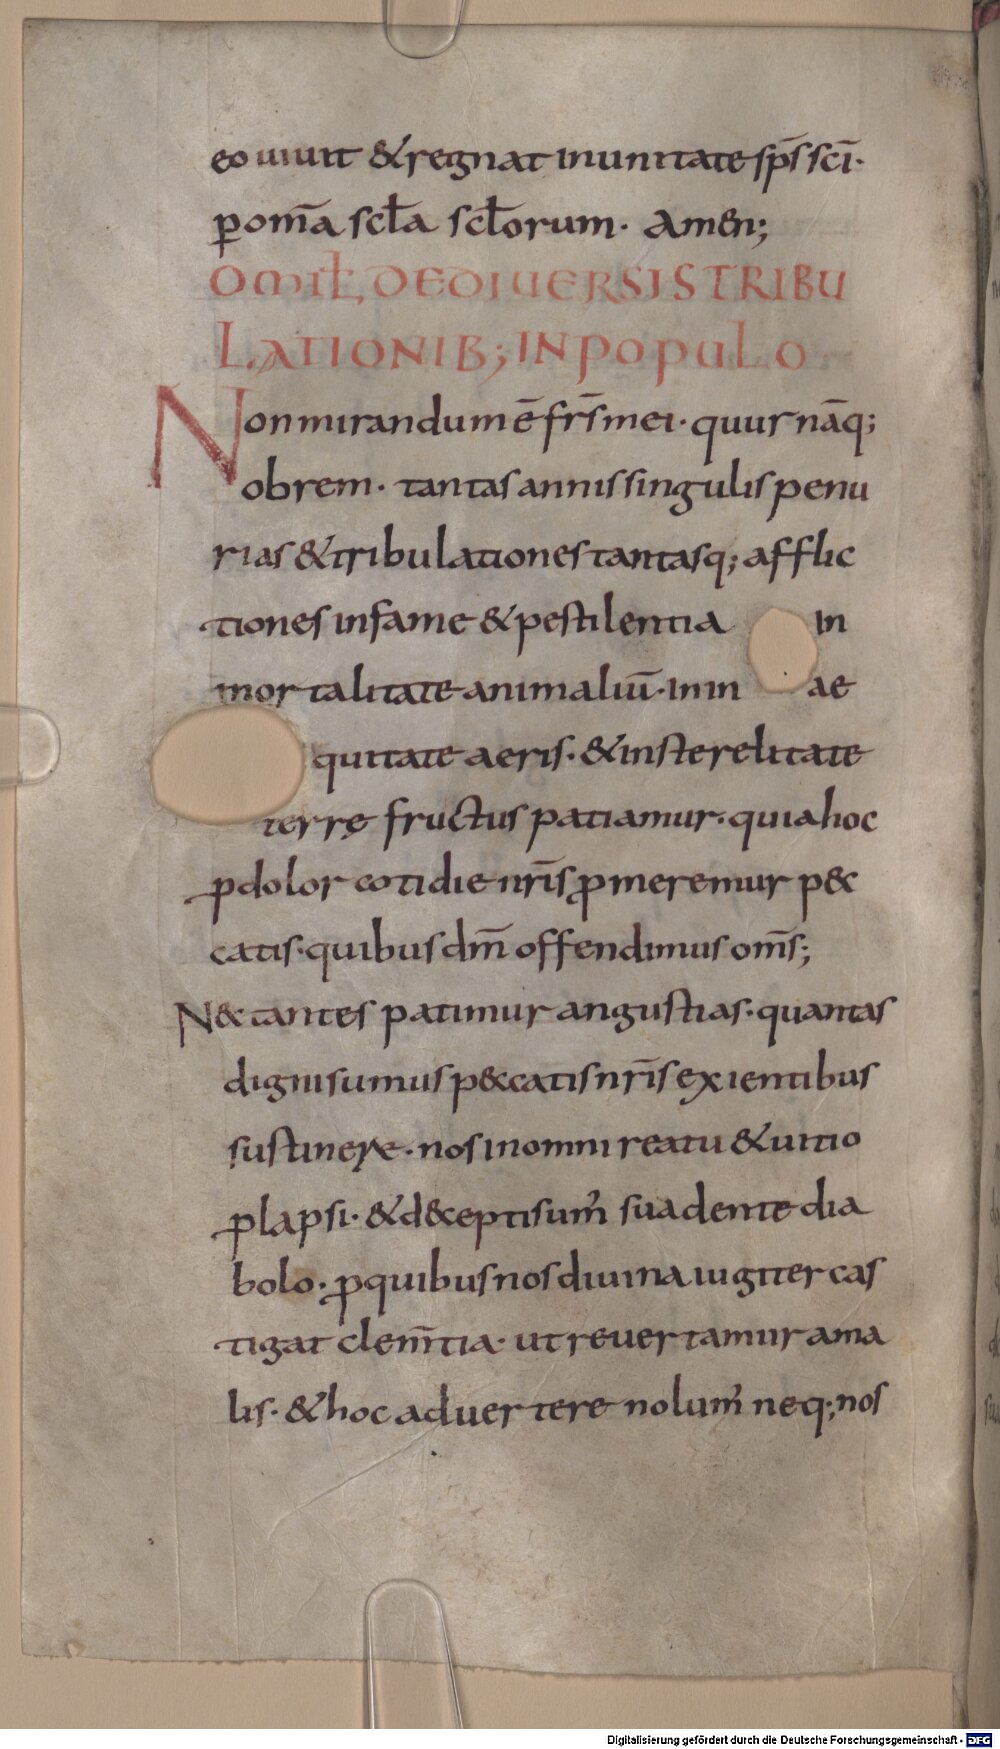 eo uiuit & regnat in unitate sp̄s sc̄i·
ꝑ om̄a scl̄a scl̄orum· Amen;
OMIL̄ DE DIUERSIS TRIBU
LATIONIB; IN POPULO
Non mirandum ē fr̄s mei· quur nāq;
ob rem· tantas annis singulis penu
rias & tribulationes tantasq; afflic
tiones in fame & pestilentia in
mortalitate animaliū· in in ae
quitate aeris· & in sterelitate
terrę fructus patiamur· quia hoc
ꝓdolor cotidie nr̄is ꝓmeremur p&
catis· quibus dm̄ offendimus om̄s;
N& tantes patimur angustias· quantas
digni sumus p&catis nr̄is exientibus
sustinere· nos in omni reatu & uitio
ꝓlapsi· & d&cepti sum᾽ suadente dia
bolo· ꝓ quibus nos diuina iugiter cas
tigat clem̄tia· ut reuertamur a ma
lis· & hoc aduertere nolum᾽ neq; nos
Digitalisierung gefördert durch die Deutsche Forschungsgemeinschaft - DFG